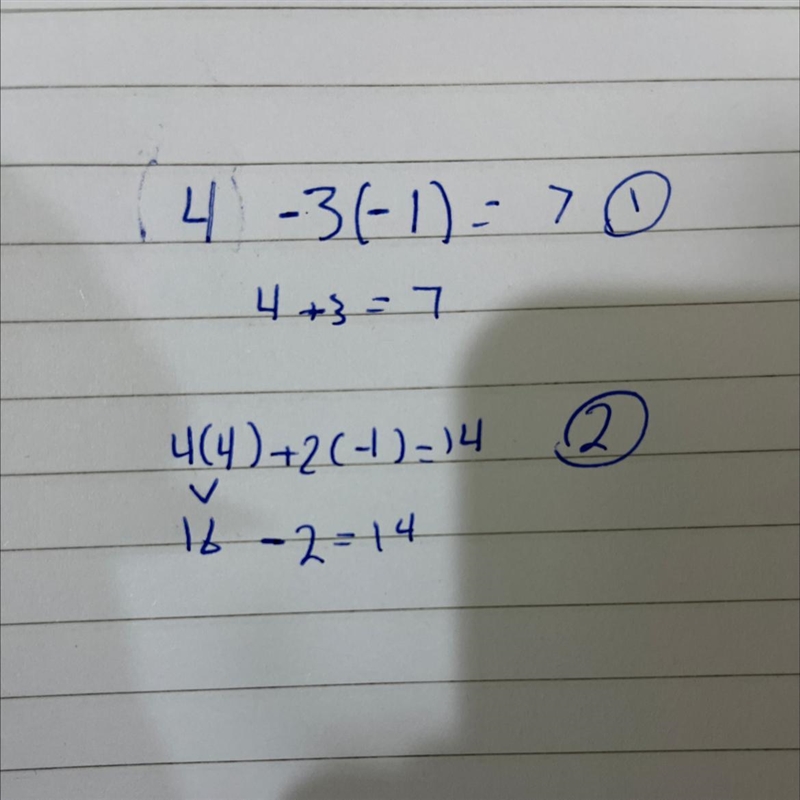 (4) -3(-1) = 7 ①
4 +3 = 7
4(4)+2(-1)=14 ②
16 -2=14